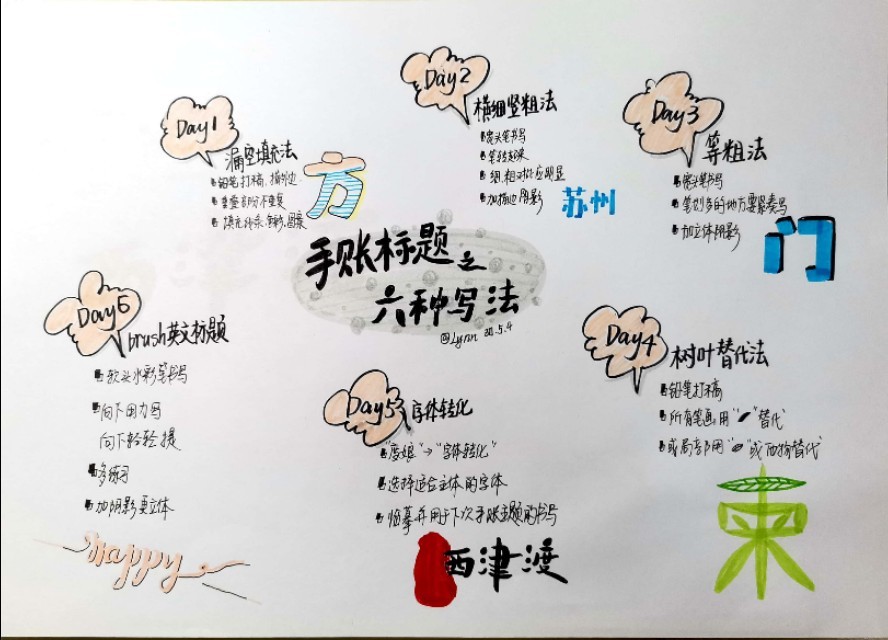 手账标题之
六种写法
@Lynn 20.5.4
Day1
漏空填充法
铅笔打稿、描外边
重叠部份不重复
填充线条、色彩、图案
方
Day2
横细竖粗法
笔书写
笔轻起来
细、粗对比应明显
加描边阴影
苏州
Day3
等粗法
笔书写
笔划多的地方要紧凑写
加立体阴影
门
Day4
树叶替代法
铅笔打稿
所有笔画用“ ”替代
或局部用“ ”或西物替代
東
Day5
字体转化
“度娘”→“字体转化”
选择适合主体的字体
临摹并用于下次手账主题的书写
西津渡
Day6
brush英文标题
软头水彩笔书写
向下用力写
向下轻轻提
多练习
加阴影更立体
happy